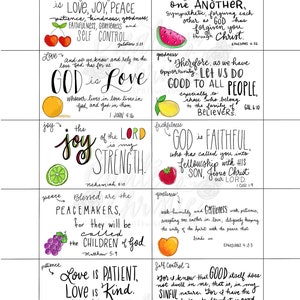 is LOVE, JOY, PEACE
patience, kindness, goodness,
FAITHFULNESS, GENTLENESS, and
SELF CONTROL
galatians 5:22
one ANOTHER,
Sympathetic, forgiving each
other, as GOD has
forgiven you, through
Christ.
EPHESIANS 4:32
Love
And so we know and rely on the
love God has for us.
GOD is Love
whoever lives in love lives in
god, and God in them.
1 JOHN 4:16
goodness
Therefore, as we have
opportunity, LET US DO
GOOD TO ALL PEOPLE,
especially to
those who belong
to the family of
BELIEVERS.
GAL 6:10
joy
the
joy of the LORD
is my
STRENGTH.
Nehemiah 8:10
faithfulness
GOD is FAITHFUL
who has called you into
fellowship with HIS
SON, Jesus Christ
OUR LORD.
1 COR 1:9
peace
Blessed are the
PEACEMAKERS,
for they will be
called
the CHILDREN of God.
Matthew 5:9
gentleness
with humility and GENTLENESS with patience,
of the spirit
EPHESIANS 4:2-3
patience
Love is PATIENT,
Love is Kind.
Self Control
GOD itself does
not dwell in me, that is, in my
SINFUL nature. For I have the